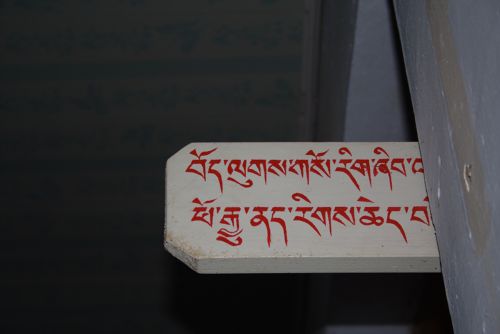 བོད་ལུགས་གསོ་རིག་ཞིབ་
ཕོ་རྒྱུ་ནད་རིགས་ཆེད་